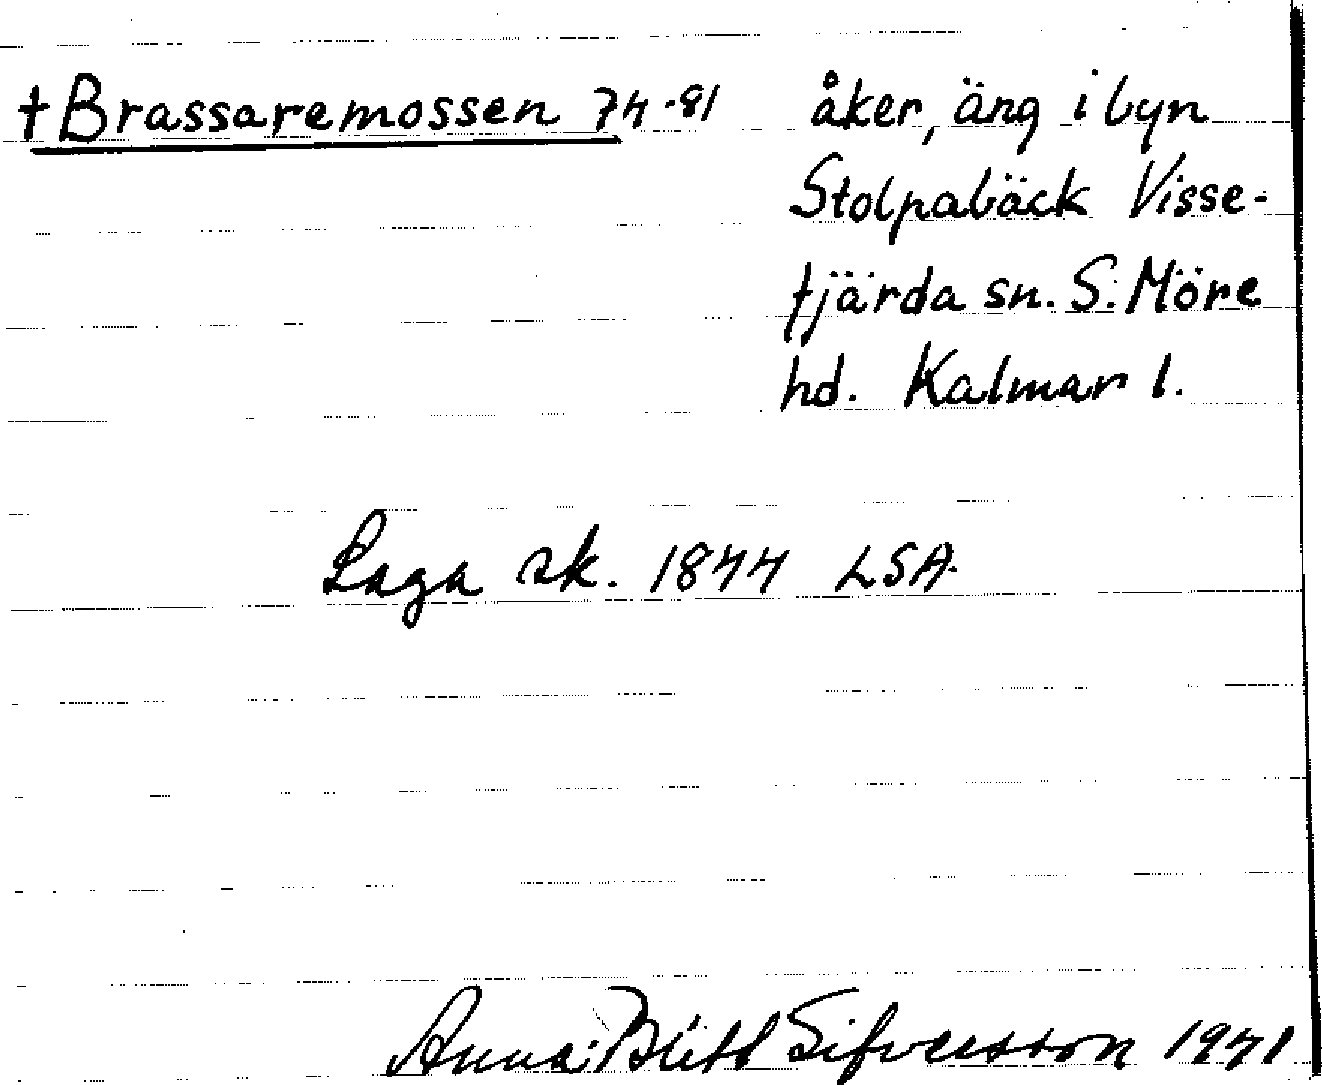 †Brassaremossen 74-81 åker, äng i byn
Stolpabäck Visse-
fjärda sn. S. Möre
hd. Kalmar l.
Laga sk. 1844 LSA.
Anna-Britt Sifversson 1971